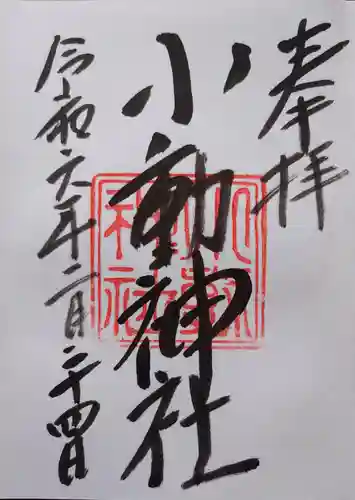 奉拝
小動神社
令和六年二月二十四日